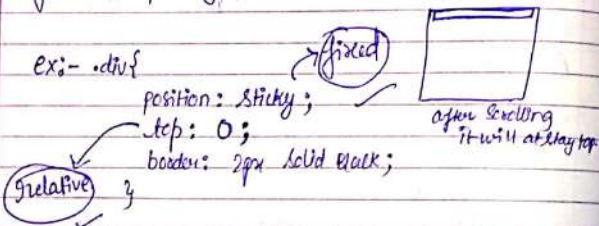 fixed
ex:- .div{
position: sticky;
top: 0;
border: 2px solid black;
relative }
after scrolling
it will at stay top